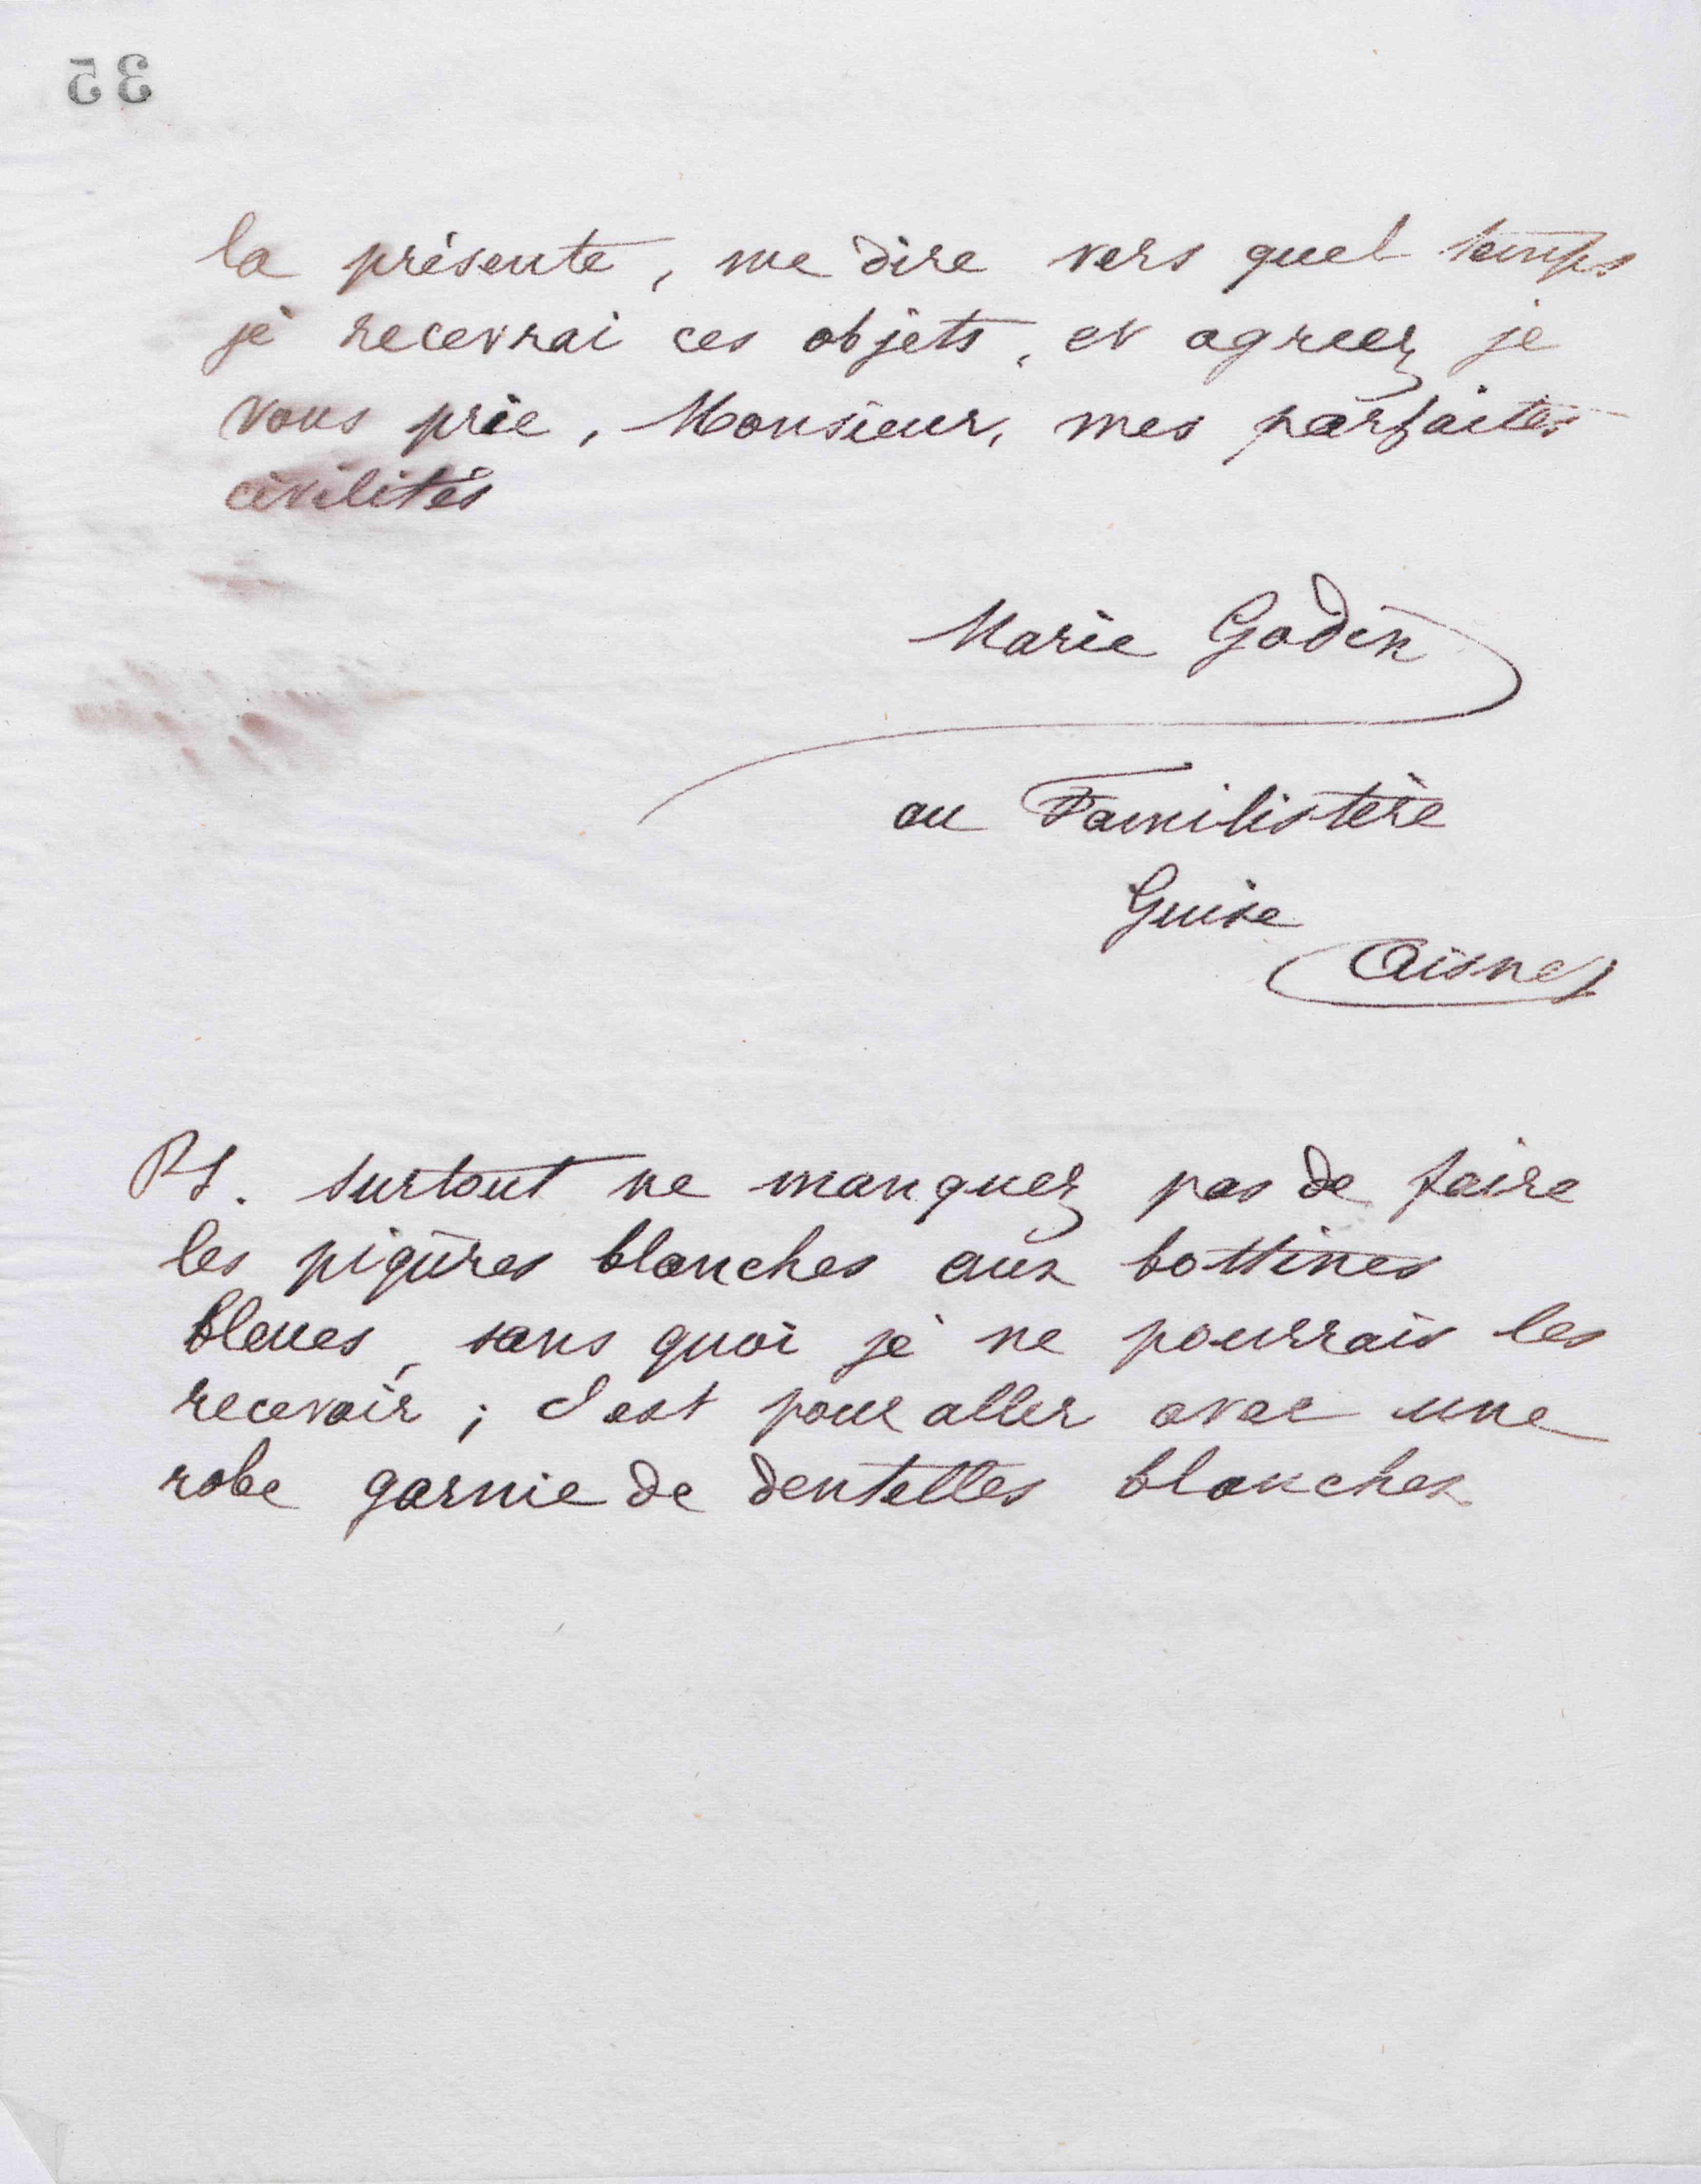 35
la présente, me dire vers quel temps
je recevrai ces objets, et agréez je
vous prie, Monsieur, mes parfaites
civilités
Marie Godin
au Familistère
Guise
(Aisne)
PS. Surtout ne manquez pas de faire
les piqûres blanches aux bottines
bleues, sans quoi je ne pourrais les
recevoir ; c'est pour aller avec une
robe garnie de dentelles blanches